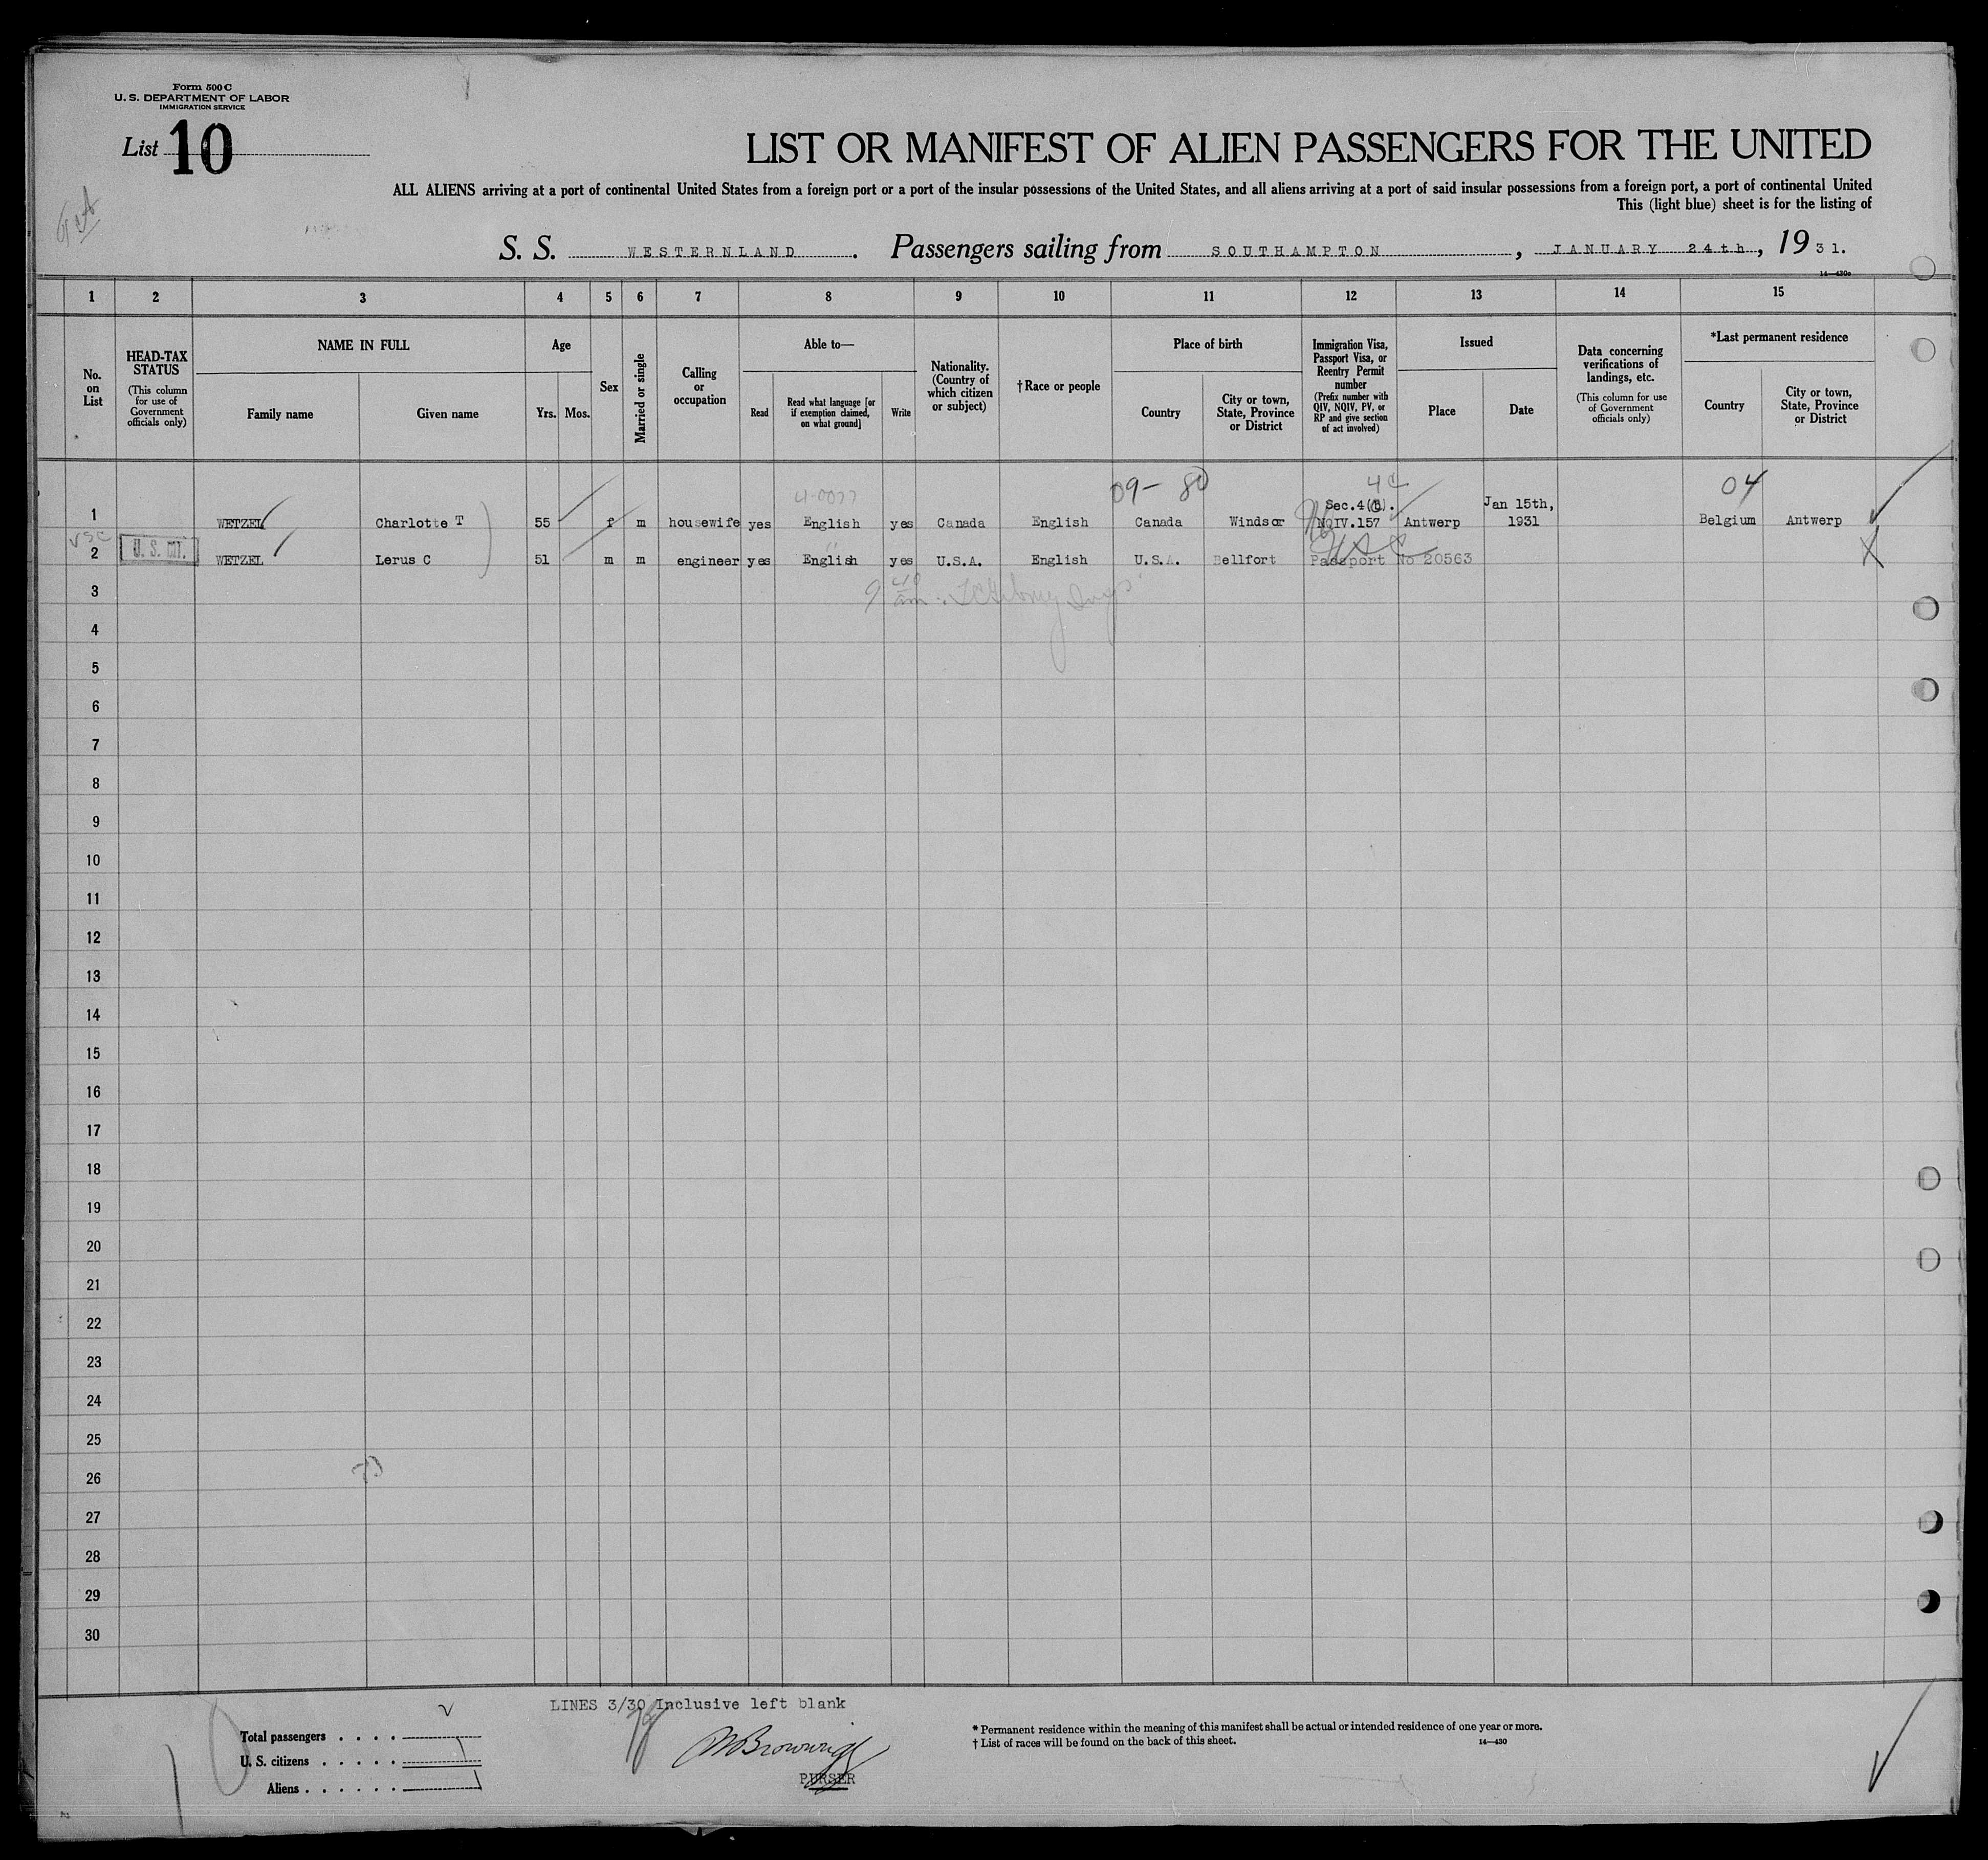 Form 500 C
U. S. DEPARTMENT OF LABOR
IMMIGRATION SERVICE
List 10
LIST OR MANIFEST OF ALIEN PASSENGERS FOR THE UNITED
ALL ALIENS arriving at a port of continental United States from a foreign port or a port of the insular possessions of the United States, and all aliens arriving at a port of said insular possessions from a foreign port, a port of continental United
This (light blue) sheet is for the listing of
S. S. WESTERNLAND. Passengers sailing from SOUTHAMPTON, JANUARY 24th, 19 31.
14—430a
1 2 3 4 5 6 7 8 9 10 11 12 13 14 15
No. on List
HEAD-TAX STATUS (This column for use of Government officials only)
NAME IN FULL
Family name Given name
Age
Yrs. Mos.
Sex
Married or single
Calling or occupation
Able to—
Read Read what language [or if exemption claimed, on what ground] Write
Nationality. (Country of which citizen or subject)
†Race or people
Place of birth
Country City or town, State, Province or District
Immigration Visa, Passport Visa, or Reentry Permit number (Prefix number with QIV, NQIV, PV, or RP and give section of act involved)
Issued
Place Date
Data concerning verifications of landings, etc. (This column for use of Government officials only)
*Last permanent residence
Country City or town, State, Province or District
09- 80 4c 04
Sec.4(c). Jan 15th,
1 WETZEL Charlotte T 55 f m housewife yes English yes Canada English Canada Windsor NQIV.157 Antwerp 1931 Belgium Antwerp
USC
2 WETZEL Lerus C 51 m m engineer yes English yes U.S.A. English U.S.A. Bellfort Passport No 20563
3
4
5
6
7
8
9
10
11
12
13
14
15
16
17
18
19
20
21
22
23
24
25
26
27
28
29
30
LINES 3/30 Inclusive left blank
Total passengers
U. S. citizens
Aliens
PURSER
* Permanent residence within the meaning of this manifest shall be actual or intended residence of one year or more.
† List of races will be found on the back of this sheet.
14—430